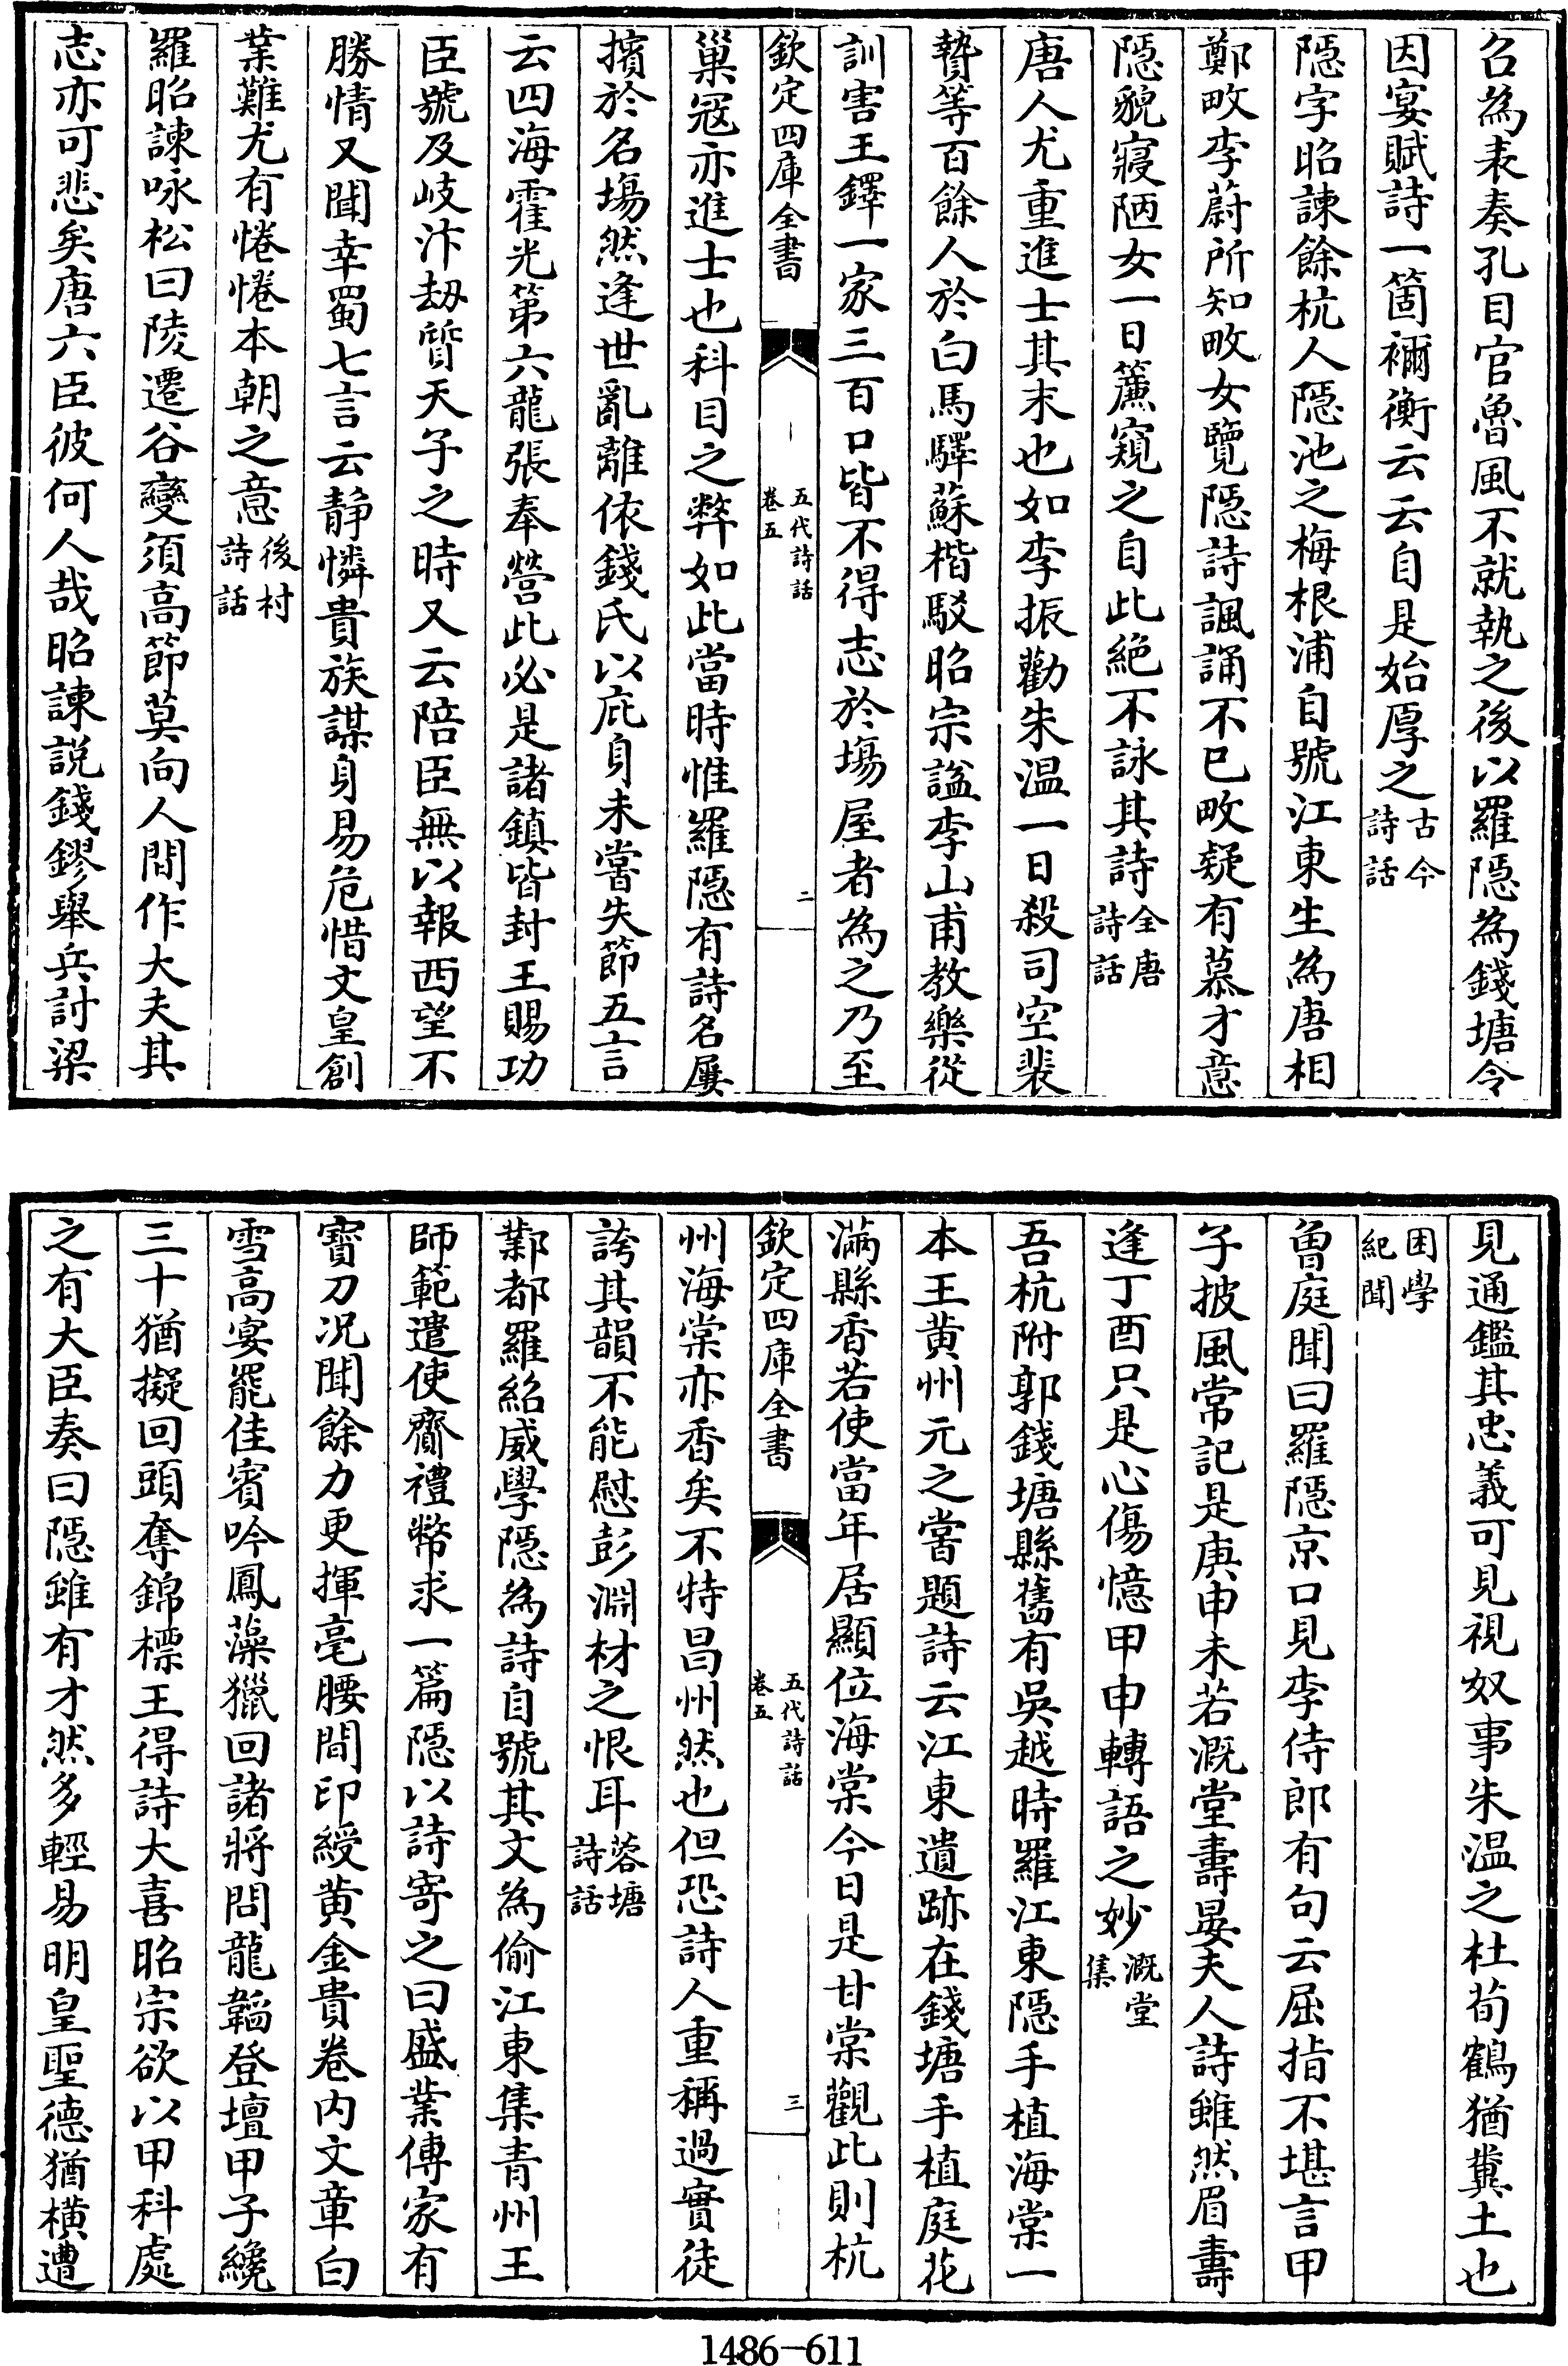 召為表奏孔目官魯風不就執之後以羅隱為錢塘令
因宴賦詩一箇禰衡云云自是始厚之古今詩話
隱字昭諫餘杭人隱池之梅根浦自號江東生為唐相
鄭畋李蔚所知畋女覽隱詩諷誦不已畋疑有慕才意
隱貌寢陋女一日簾窺之自此絕不詠其詩全唐詩話
唐人尤重進士其末也如李振勸朱温一日殺司空裴
贄等百餘人於白馬驛蘇楷駁昭宗諡李山甫教樂從
訓害王鐸一家三百口皆不得志於場屋者為之乃至
欽定四庫全書 五代詩話卷五 二
巢寇亦進士也科目之弊如此當時惟羅隱有詩名屢
擯於名塲然逢世亂離依錢氏以庇身未嘗失節五言
云四海霍光第六龍張奉營此必是諸鎮皆封王賜功
臣號及岐汴刼質天子之時又云陪臣無以報西望不
勝情又聞幸蜀七言云静憐貴族謀身易危惜文皇創
業難尤有惓惓本朝之意後村詩話
羅昭諫咏松曰陵遷谷變須高節莫向人間作大夫其
志亦可悲矣唐六臣彼何人哉昭諫説錢鏐舉兵討梁
見通鑑其忠義可見視奴事朱温之杜荀鶴猶糞土也
困學紀聞
魯庭聞曰羅隱京口見李侍郎有句云屈指不堪言甲
子披風常記是庚申未若溉堂壽晏夫人詩雖然眉壽
逢丁酉只是心傷憶甲申轉語之妙溉堂集
吾杭附郭錢塘縣舊有吳越時羅江東隱手植海棠一
本王黄州元之嘗題詩云江東遺跡在錢塘手植庭花
滿縣香若使當年居顯位海棠今日是甘棠觀此則杭
欽定四庫全書 五代詩話卷五 三
州海棠亦香矣不特昌州然也但恐詩人重稱過實徒
誇其韻不能慰彭淵材之恨耳蓉塘詩話
鄴都羅紹威學隱為詩自號其文為偷江東集青州王
師範遣使齎禮幣求一篇隱以詩寄之曰盛業傳家有
寶刀况聞餘力更揮毫腰間印綬黄金貴卷内文章白
雪高宴罷佳賓吟鳳藻獵回諸將問龍韜登壇甲子纔
三十猶擬回頭奪錦標王得詩大喜昭宗欲以甲科處
之有大臣奏曰隱雖有才然多輕易明皇聖德猶橫遭
1486-611